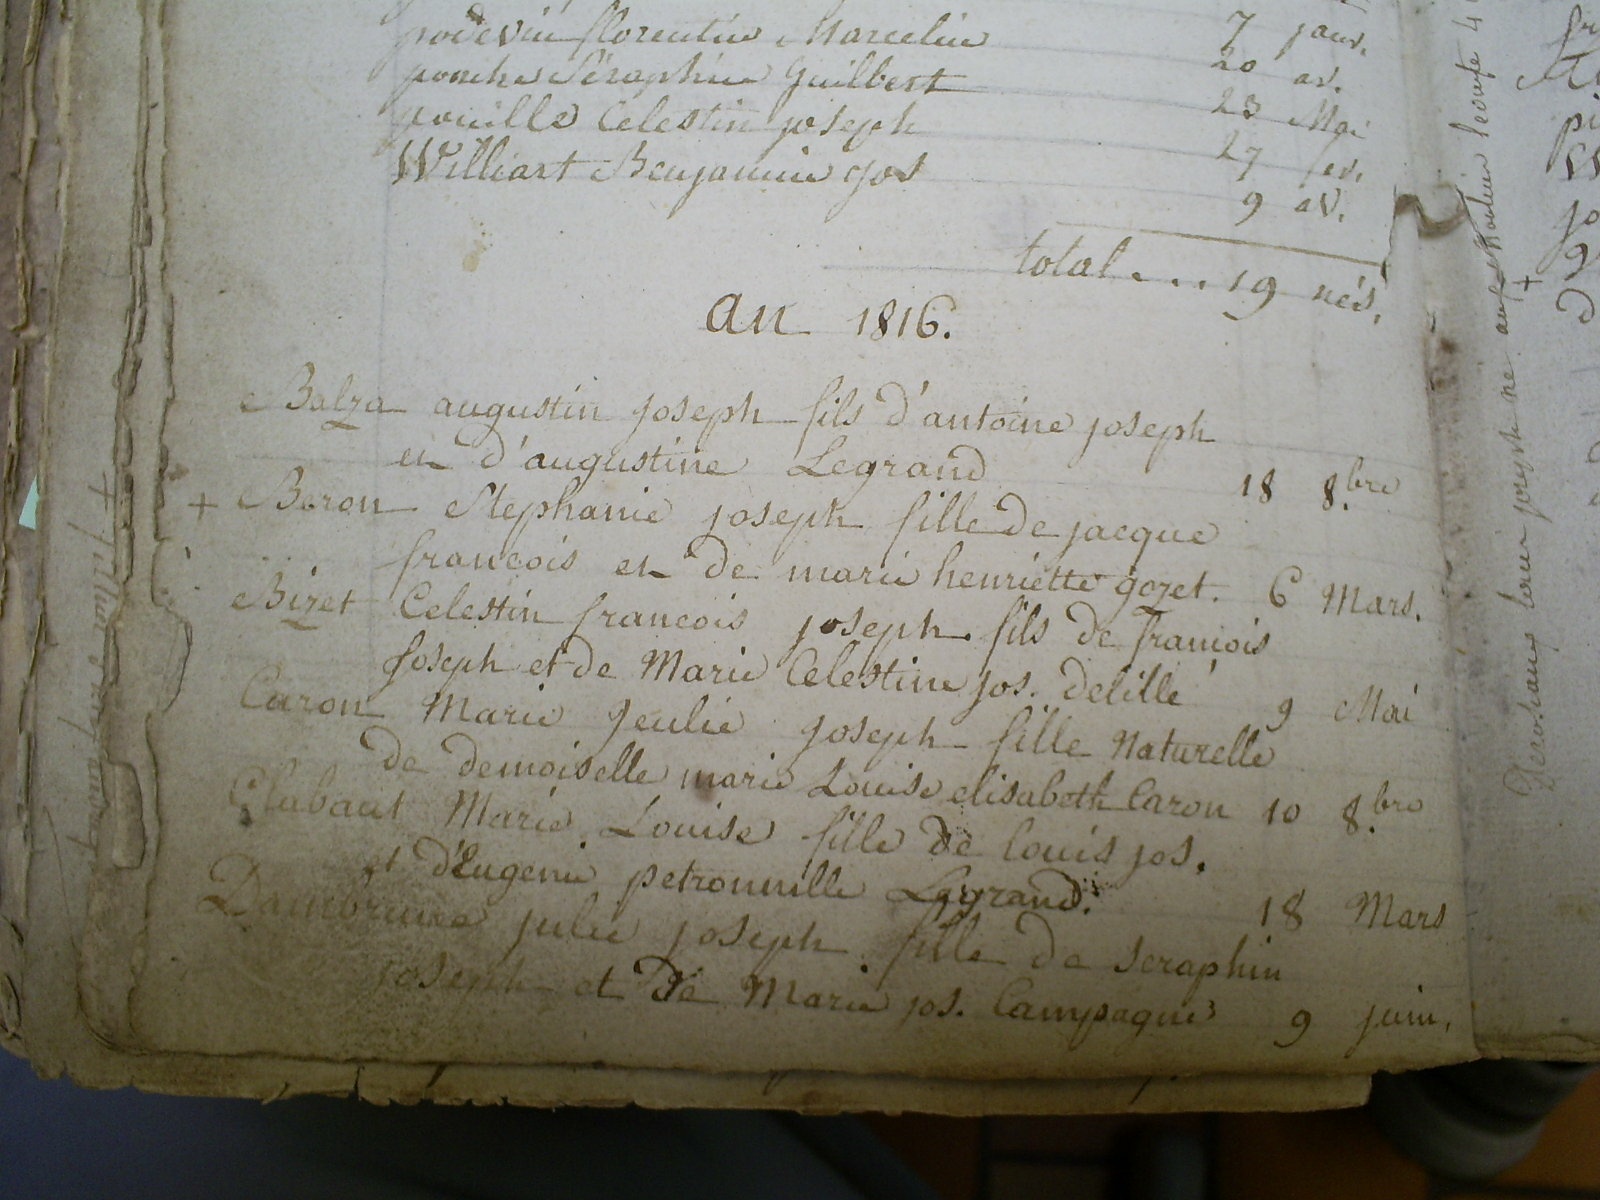 podevin florentin Marcelin 7 janv.
ponche Séraphin Guilbert 20 av.
pouille Celestin joseph 23 Mai
Williart Benjamin jos 27 fev.
9 av.
total . . . 19 nés.
an 1816.
Balza augustin joseph fils d'antoine joseph
et d'augustine Legrand 18 8.bre
+ Beron Stephanie joseph fille de jacque
francois et de marie henriette gozet. 6 Mars.
Bizet Celestin francois joseph fils de francois
joseph et de Marie Celestine jos. delille 9 Mai
Caron Marie Jeulie joseph fille Naturelle
de demoiselle marie Louise elisabeth Caron 10 8.bre
Clabaut Marie Louise fille de louis jos.
et d'Eugenie petronnille Legrand. 18 Mars
Dambrine julie joseph fille de seraphin
joseph et de Marie jos. Campagne 9 juin.